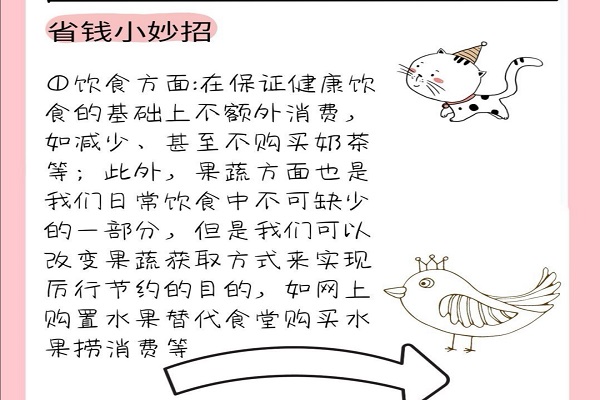 省钱小妙招
①饮食方面:在保证健康饮
食的基础上不额外消费,
如减少、甚至不购买奶茶
等;此外,果蔬方面也是
我们日常饮食中不可缺少
的一部分,但是我们可以
改变果蔬获取方式来实现
厉行节约的目的,如网上
购置水果替代食堂购买水
果捞消费等